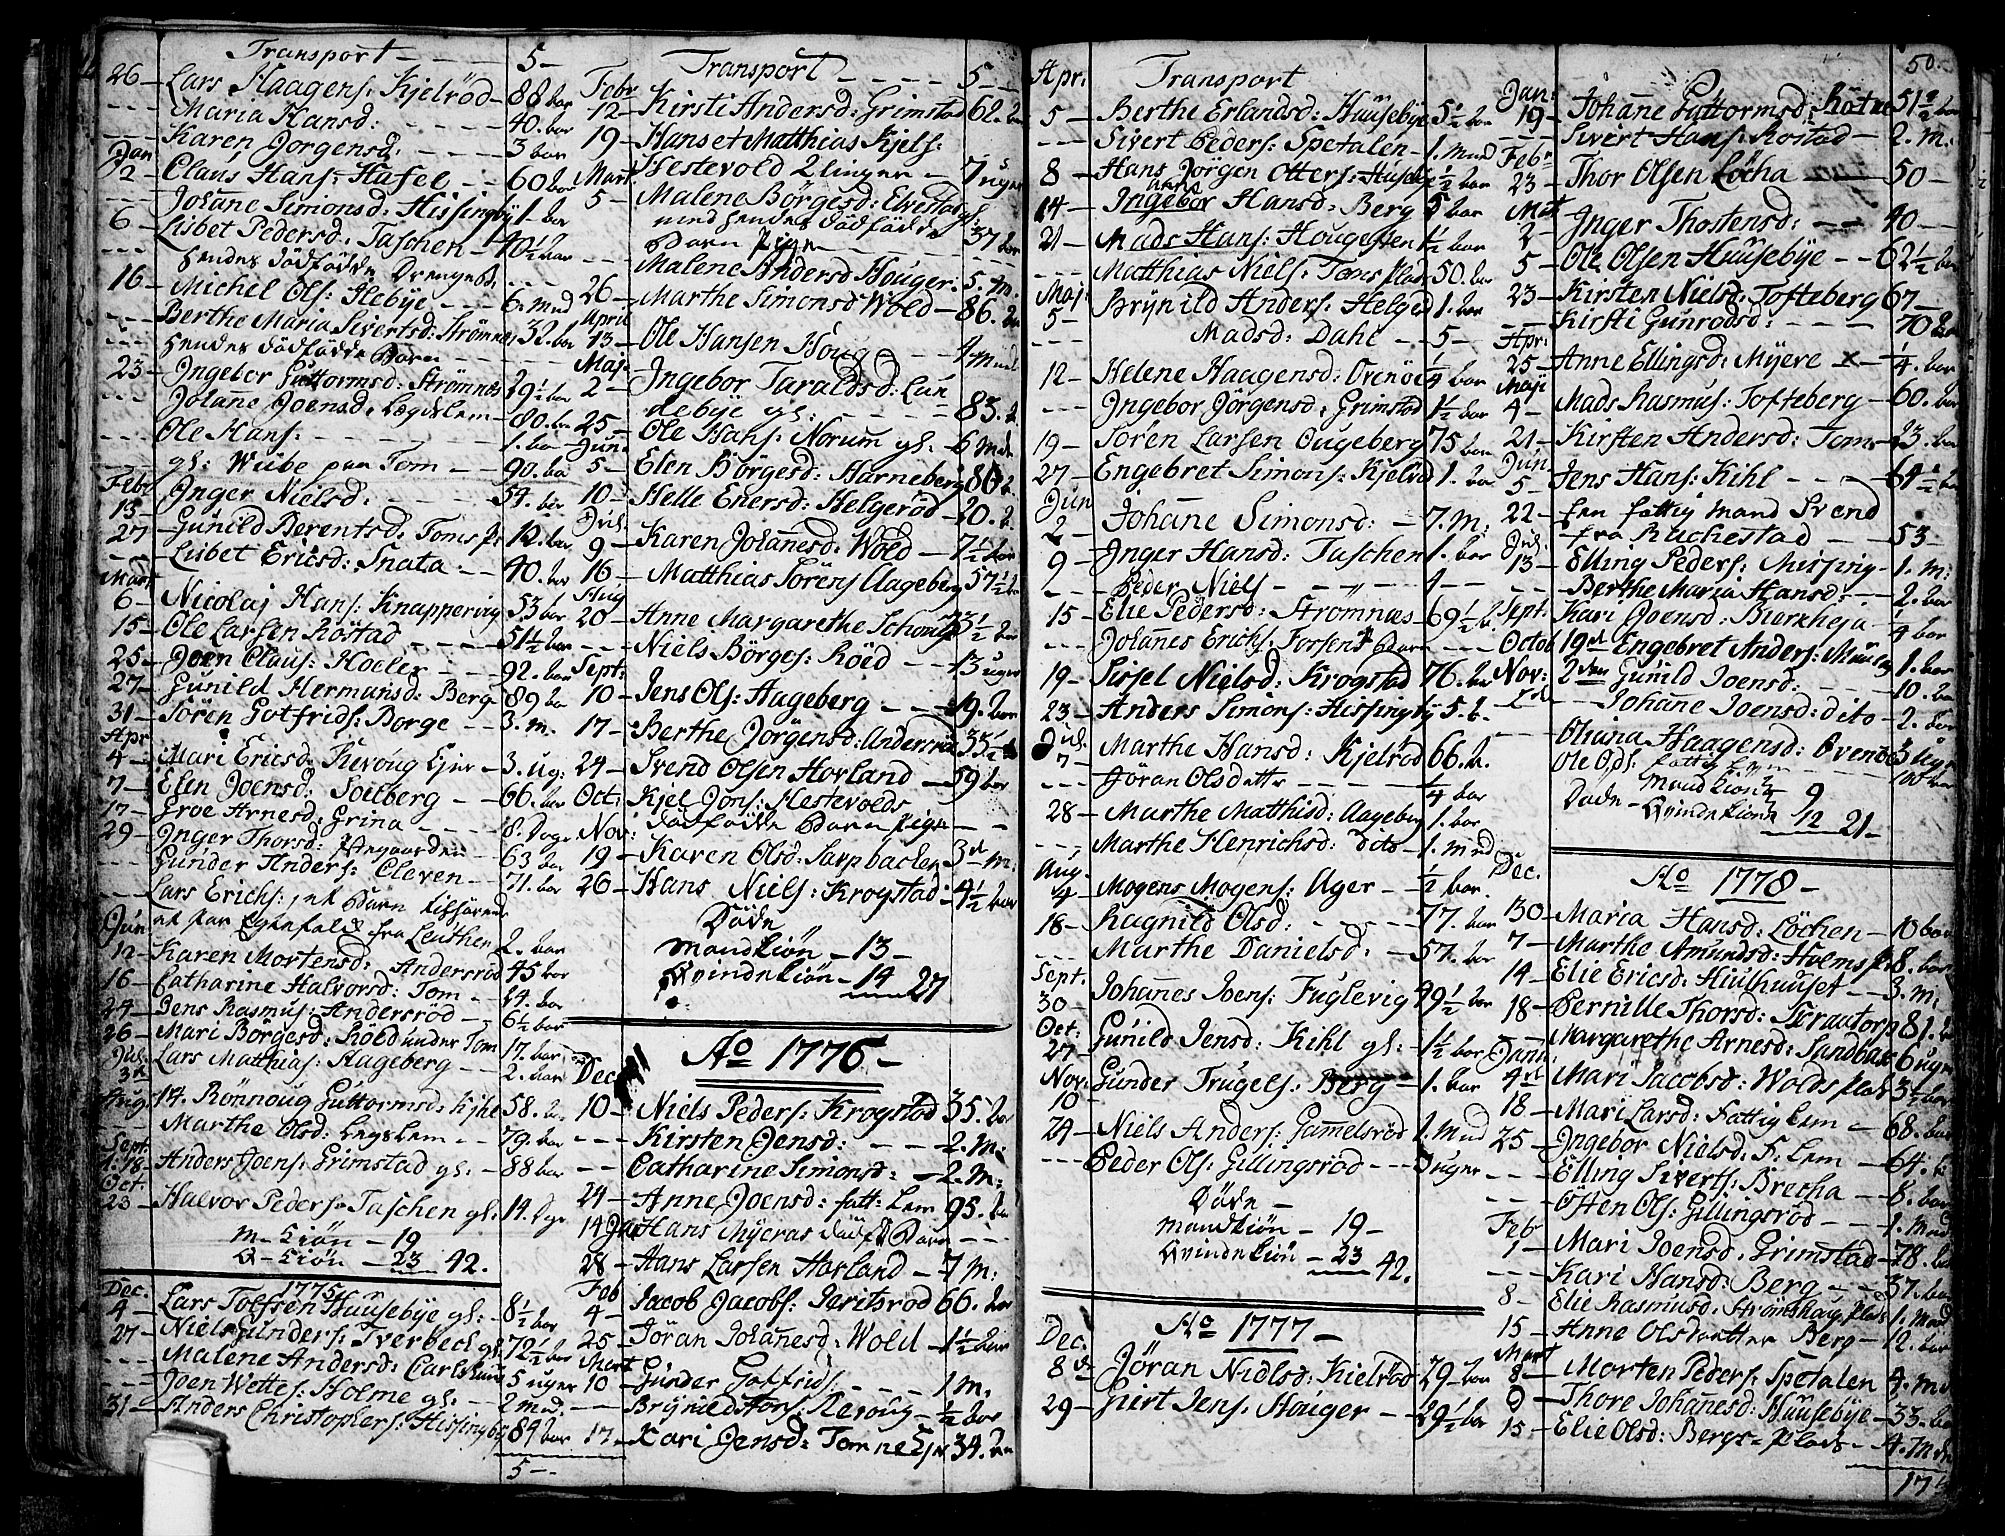 Transport - - - - 5 -
26 - Lars Haagens: Kjelröd - 88 har
- - - Maria Hansd: - - - - - 40. har
- - - Karen Jorgensd. - - - - 3 har
Jan
2 - Claus Hans: Hafel - - - 60 har
- - - Johane Simonsd: Hissingby 1 har
6 - Lisbet Pedersd: Taschen - 40½ har
hendes dödfödde Drengeb.
16 - Michel Ols: Ilebye - - - 6. mnd
- - - Berthe Maria Sivertsd: Strömnes 32. har
- - - hendes dödfödde Barn
23 - Ingebor Guttormsd: Strömnes 29½ har
- - - Johane Joensd: Lægdslem - 80. har
- - - Ole Hans: - - - - 1. har
- - - gl: Wiibe paa Tom - - 90. har
Febr
13 - Inger Nielsd: - - - - 54. har
27 - Gunild Berentsd: Toms Pl 12. har
- - - Lisbet Ericsd: Snata - - 40. har
Mart
6 - Nicolaj Hans: Knappervig 53 har
15 - Ole Larsen Röstad - - - 51½ har
25 - Joen Claus: Hoeler - - - 92. har
27 - Gunild Hermansd: Berg 89 har
31 - Sören Gotfrids: Borge - - 3. m.
Apr
4 - Mari Ericsd: Keroug Ejer - 3. ug:
7 - Elen Joensd: Soilberg - - 66. har
17 - Groe Arnesd: Grina - - - 8. Dage
29 - Inger Thorsd: - - 63 har
- - - Gunder Anders: Cleven - - 71. har
- - - Lars Erichs: et Barn
fra Leuthen 2. har
Jun
12 - Karen Mortensd: Andersröd 45 har
16 - Catharine Halvorsd: Tom - 24. har
24 - Jens Rasmus: Andersröd - 6½ har
26 - Mari Börgesd: Röed under Tom 17. har
Jul.
3 - Lars Matthias: Aageberg - - 2. har
Aug. 14. Rönnoug Guttormsd: Kihl 58. har
- - - Marthe Olsd: Legslem - - 79. har
Sept.
1. 18 - Anders Joens: Grimstad gl: - 88 har
Oct.
23 - Halvor Peders: Taschen gl: 14. dge
M - kiön - 19
Q - kiön - 23 42.
Dec. 1775
4 - Lars Tolfsen Huusebye gl: - 8½ har
27 - Niels Gunders: Tverbeck gl: 72½ har
- - - Malene Andersd: Carlshuus 5 uger
- - - Joen Wettes: Holme gl: - 2 mnd:
31 - Anders Christophers: Hissingby 84 har
5 - -
Transport - - - - 5 - -
Febr
12 - Kirsti Andersd: Grimstad 62. har
19 - Hans et Matthias Kjels:
Hestevold 2linger - 7 uger
Mart
5 - Malene Börgesd: Elvestad
med hendes dödfödde
Barn Pige - 37 har
- - - Malene Andersd Houger. 5. m.
26 - Marthe Simonsd Wold - 86. har
April
13 - Ole Hansen Houg - - - 4. mnd
Maj
2 - Ingebor Taraldsd: Lun
debye gl: - - - - 83. har
25 - Ole Hans: Norum gl: - 6 mdr
Jun.
5 - Elen Börgesd: Harneberg 80 har
10 - Helle Enersd: Helgeröd - 20. har
Jul.
9 - Karen Johanesd: Wold - 7½ har
16 - Matthias Sörens Aageberg 57½ har
Aug
20 - Anne Margarethe Schougs 33½ har
- - - Niels Börges: Röed - - 13 uger
Sept:
10 - Jens Ols: Aageberg - - - 19. har
17 - Berthe Jörgensd: Andersröd 35½ har
24 - Svend Olsen Horland - 59 har
Oct: Kjel Jons: Hestevolds
Nov: dödfödde Barn Pige - -
19 - Karen Olsd: Sarpbacken 3 m:
26 - Hans Niels: Krogstad - 4½ har
Döde
Mandkiön - 13 -
Qvindekiön - 14 27
Ao 1776 -
Dec
10 - Niels Peders: Krogstad 35. har
- - - Kirsten Jensd: - - - 2. m:
- - Catharine Simonsd: - 2. m:
24 - Anne Joensd: fatt: Lem 95. har
14 Jan Hans Myeras dödf: Barn - - -
28 - Hans Larsen Harland - 7 m:
Feb
4 - Jacob Jacobs: Geritsröd 66. har
25 - Jöran Johanesd: Wold - 1½ har
Mart
10 - Gunder Gotfrids: - - - 1 m.
- - - Brynild Hans: Keroug - ½ har
17 - Kari Jensd: Tomne Ejer 34. har
Apr: Transport
5 - Berthe Erlandsd: Huusebye 5½ har
- - - Sivert Peders: Spetalen - 1. mnd
8 - Hans Jörgen Otters: Huuseb ½ har
14 - Ingebor anne Hansd: Berg 5 har
21 - Mads Hans: Hougesten 1½ har
- - - Matthias Niels: Toms Plads 50. har
Maj:
5 - Brynild Anders: Helgeröd 1. har
- - - Madsd: Dahl - - 5 -
12 - Helene Haagensd: Ovenöe ¼ har
- - - Ingebor Jörgensd: Grimstad 1½ har
19 - Sören Larsen Ougeberg 75 har
27 - Engebret Simons: Kjelröd 1. har
Jun
2 - Johane Simonsd: - 7. m:
9 - Inger Hansd: Taschen 1. har
- - - Peder Niels - - - 1 - -
15 - Elie Pedersd: Strömnæs - 69½ h.
- - - Johanes Erichs: Torsens Barn - - -
19 - Sissel Nielsd: Krogstad 76. har
23 - Anders Simons: Hissingby 5. h.
Jul.
7 - Marthe Hansd: Kjelröd 66. h.
- - - Jöran Olsdatter - - - - ¼ har
28 - Marthe Matthisd: Aageberg 1. har
- - - Marthe Henrichsd: dito - 1. mnd
Aug.
4 - Mogens Mogens: Ager - - ½ har
18 - Ragnild Olsd: - - - - 77. har
- - - Marthe Danielsd: - - 57. har
Sept.
30 Johannes Joens: Fuglevig 49½ har
Oct:
27 - Gunild Jensd: Kihl gl: - 1½ har
Nov:
10 - Gunder Trugels: Berg - 1. har
24 - Niels Anders: Gammelsröd 1. mnd
- - - Peder Ols: Gillingsröd - - - 3 uger
Döde -
Mandkiön - 19 -
Qvindekiön - 23 42.
Ao 1777 -
Dec.
8 - Jöran Nidlsd: Kielröd 29 har
29 - Giert Jens: Houger - - 29½ har
50.
Jan:
19 - Johane Guttormsd: Röstad 51½ har
- - - Sivert Hans: Rostad - 2. m.
Febr
23 - Thor Olsen Löcha - 50 -
Mart
2 - Inger Thostensd: - - 40 -
5 - Ole Olsen Huusebye - - 62½ har
23 - Kirsten Nielsd: Tofteberg 67 -
- - - Kirsti Gunrodsd: - - - 70 har
Apr:
25 - Anne Ellingsd: Myere x - ¼. har
Maji
4 - Mads Rasmus: Tofteberg - 60. har
21 - Kirsten Andersd: Toms - 23. har
Jun
5 - Jens Hans: Kihl - - - 64½ har
22 - fra fattig mand Svend
fra Rachestad - - 53 -
Jul.
13 - Elling Peders: Missing - 1. m:
- Berthe Maria Hansd: - - 2. har
Sept. Kari Joensd: Bierkheja - ¼ har
Octob 19de Engebret Anders: Muus 1. har
Nov: 2den Gunild Joensd: - - - 10. har
- - - Johane Joensd: dito - 2. har
- - - Oliana Haagensd: Ovenöe 3 uger
Ole Ols: fattig Lem - - 100 har
Mandkiön - 9
Döde - Qvindekiön 12 21 -
Ao 1778 -
Dec.
30 Maria Hansd: Löchen - 10 har
7 - Marthe Amundsd: Holms Pl 8. har
14 - Elie Ericsd: Hiulhuuset - 3. m.
18 - Pernille Thorsd: Trautorp 81. har
- Margarethe Arnesd: Sandbak 6 uger
Janu:
4 - Mari Jacobsd: Wolds Plads 3½ har
18 - Mari Larsd: Fattig Lem - - 68. har
25 - Ingebor Nielsd: F: Lem - 64. h
- - - Elling Siverts: Brecha - - 8. har
- - - Östen Ols: Gillingsröd - - 1. mnd
Feb
1 - Mari Joensd: Grimstad 78. har
- - - Kari Hansd: Berg - - - 37. har
8 - Elie Rasmusd: Strömshaug Plads 1. mnd
15 - Anne Olsdatter Berg - 12. har
Mart
8 - Morten Peders: Spetalen 4. mnd
9 - Thore Johanesd: Huusebye - 33. har
15 - Elie Olsd: Bergs = Plads - 4. mdr
17